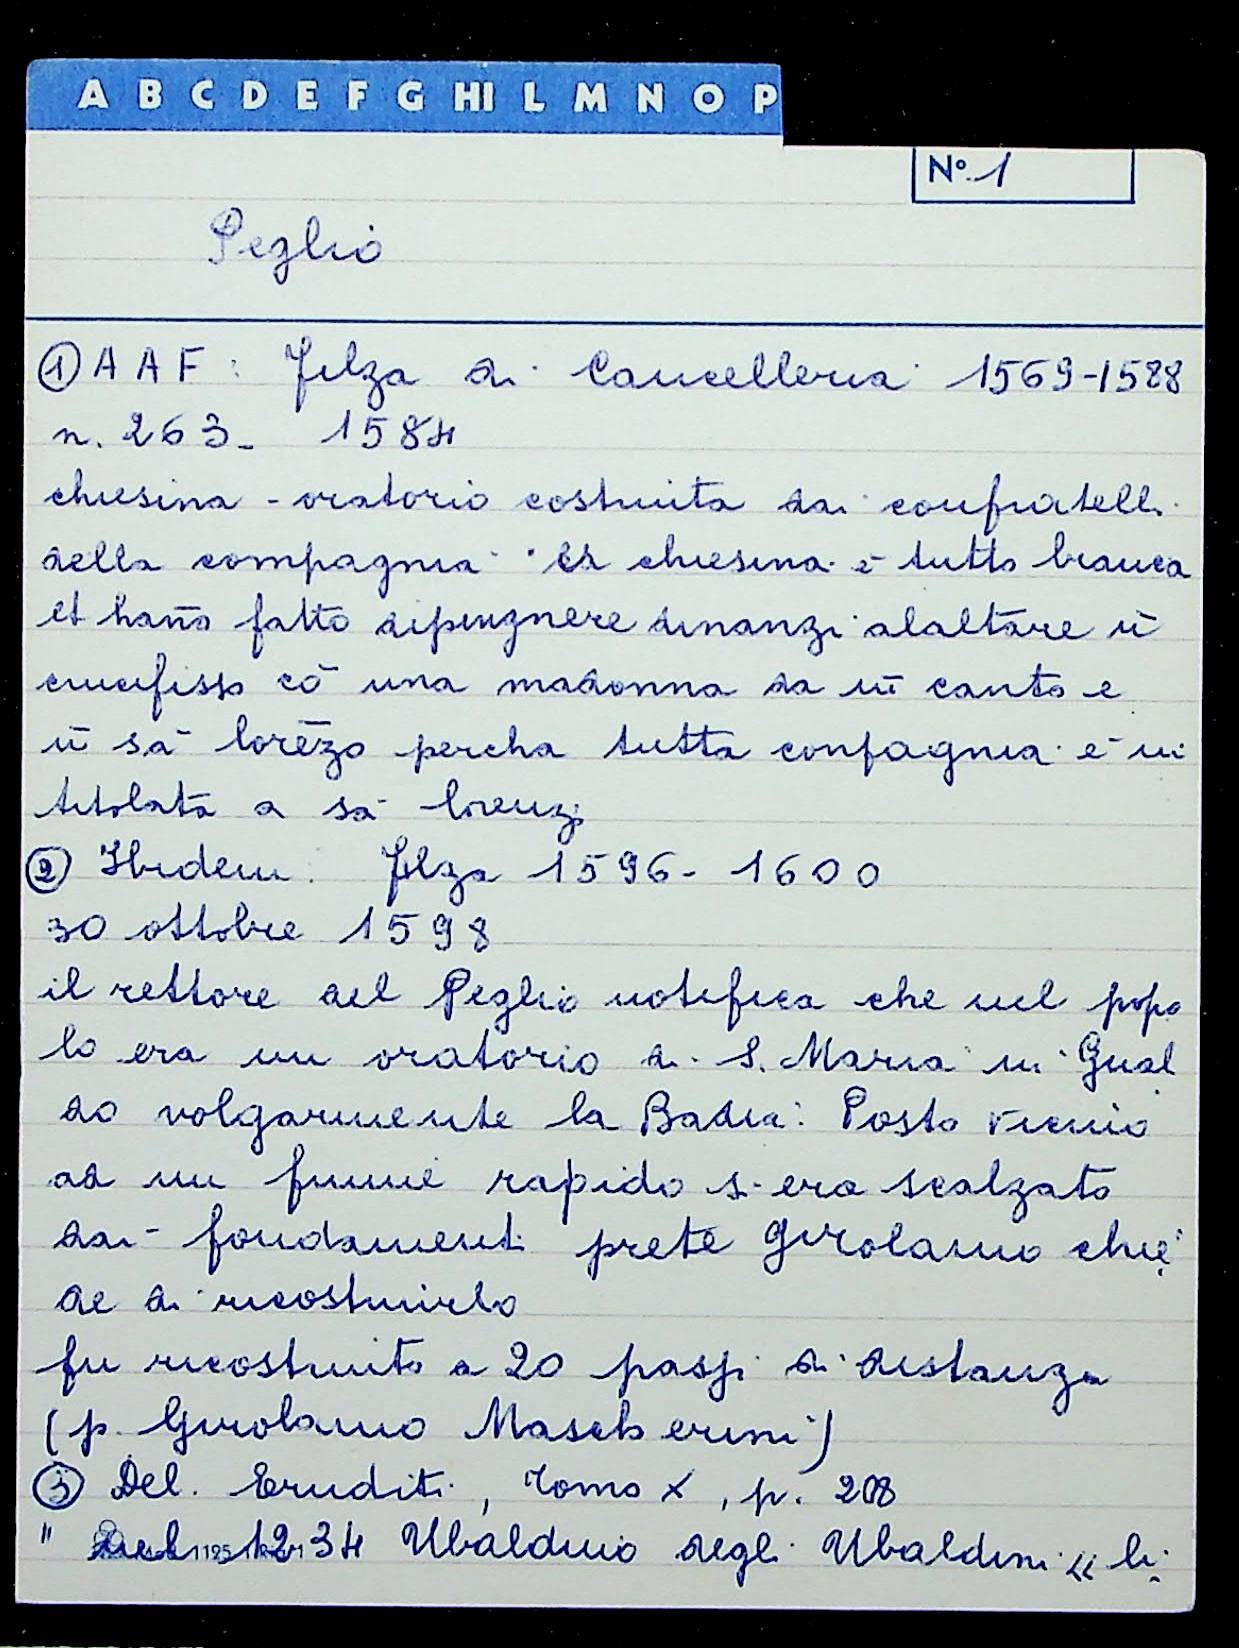 A B C D E F G HI L M N O P
N° 1
Peglio
① A A F : Filza di Cancelleria 1569-1588
n. 263 - 1584
chiesina - oratorio costruita dai confratelli
della compagnia "la chiesina è tutto bianca
et hanō fatto dipingnere dinanzi alaltare ū
crucifisso cō una madonna da ūi canto e
ū sā lorēzo percha tutta conpagnia è in
titolata a sā lorenzi
② Ibidem : Filza 1596 - 1600
30 ottobre 1598
il rettore del Peglio notifica che nel popo
lo era un oratorio di S. Maria in Gual
do volgarmente la Badia: Posto vicino
ad un fiume rapido si era scalzato
dai fondamenti prete Girolamo chie
de di ricostruirlo
fu ricostruito a 20 passi di distanza
(p. Girolamo Mascherini)
③ Del. Eruditi, Tomo X, p. 208
" nel 1234 Ubaldino degli Ubaldini « li